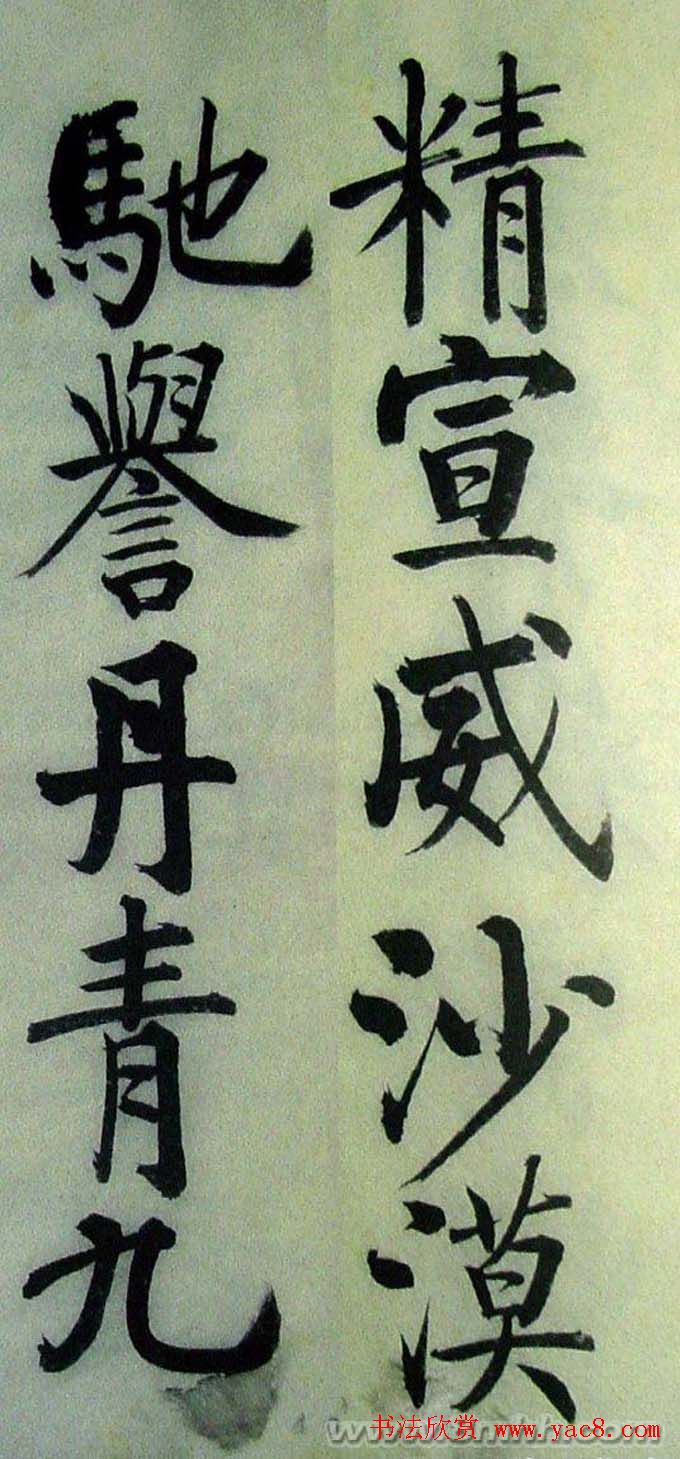 精宣威沙漠
馳譽丹青九
书法欣赏 www.yac8.com